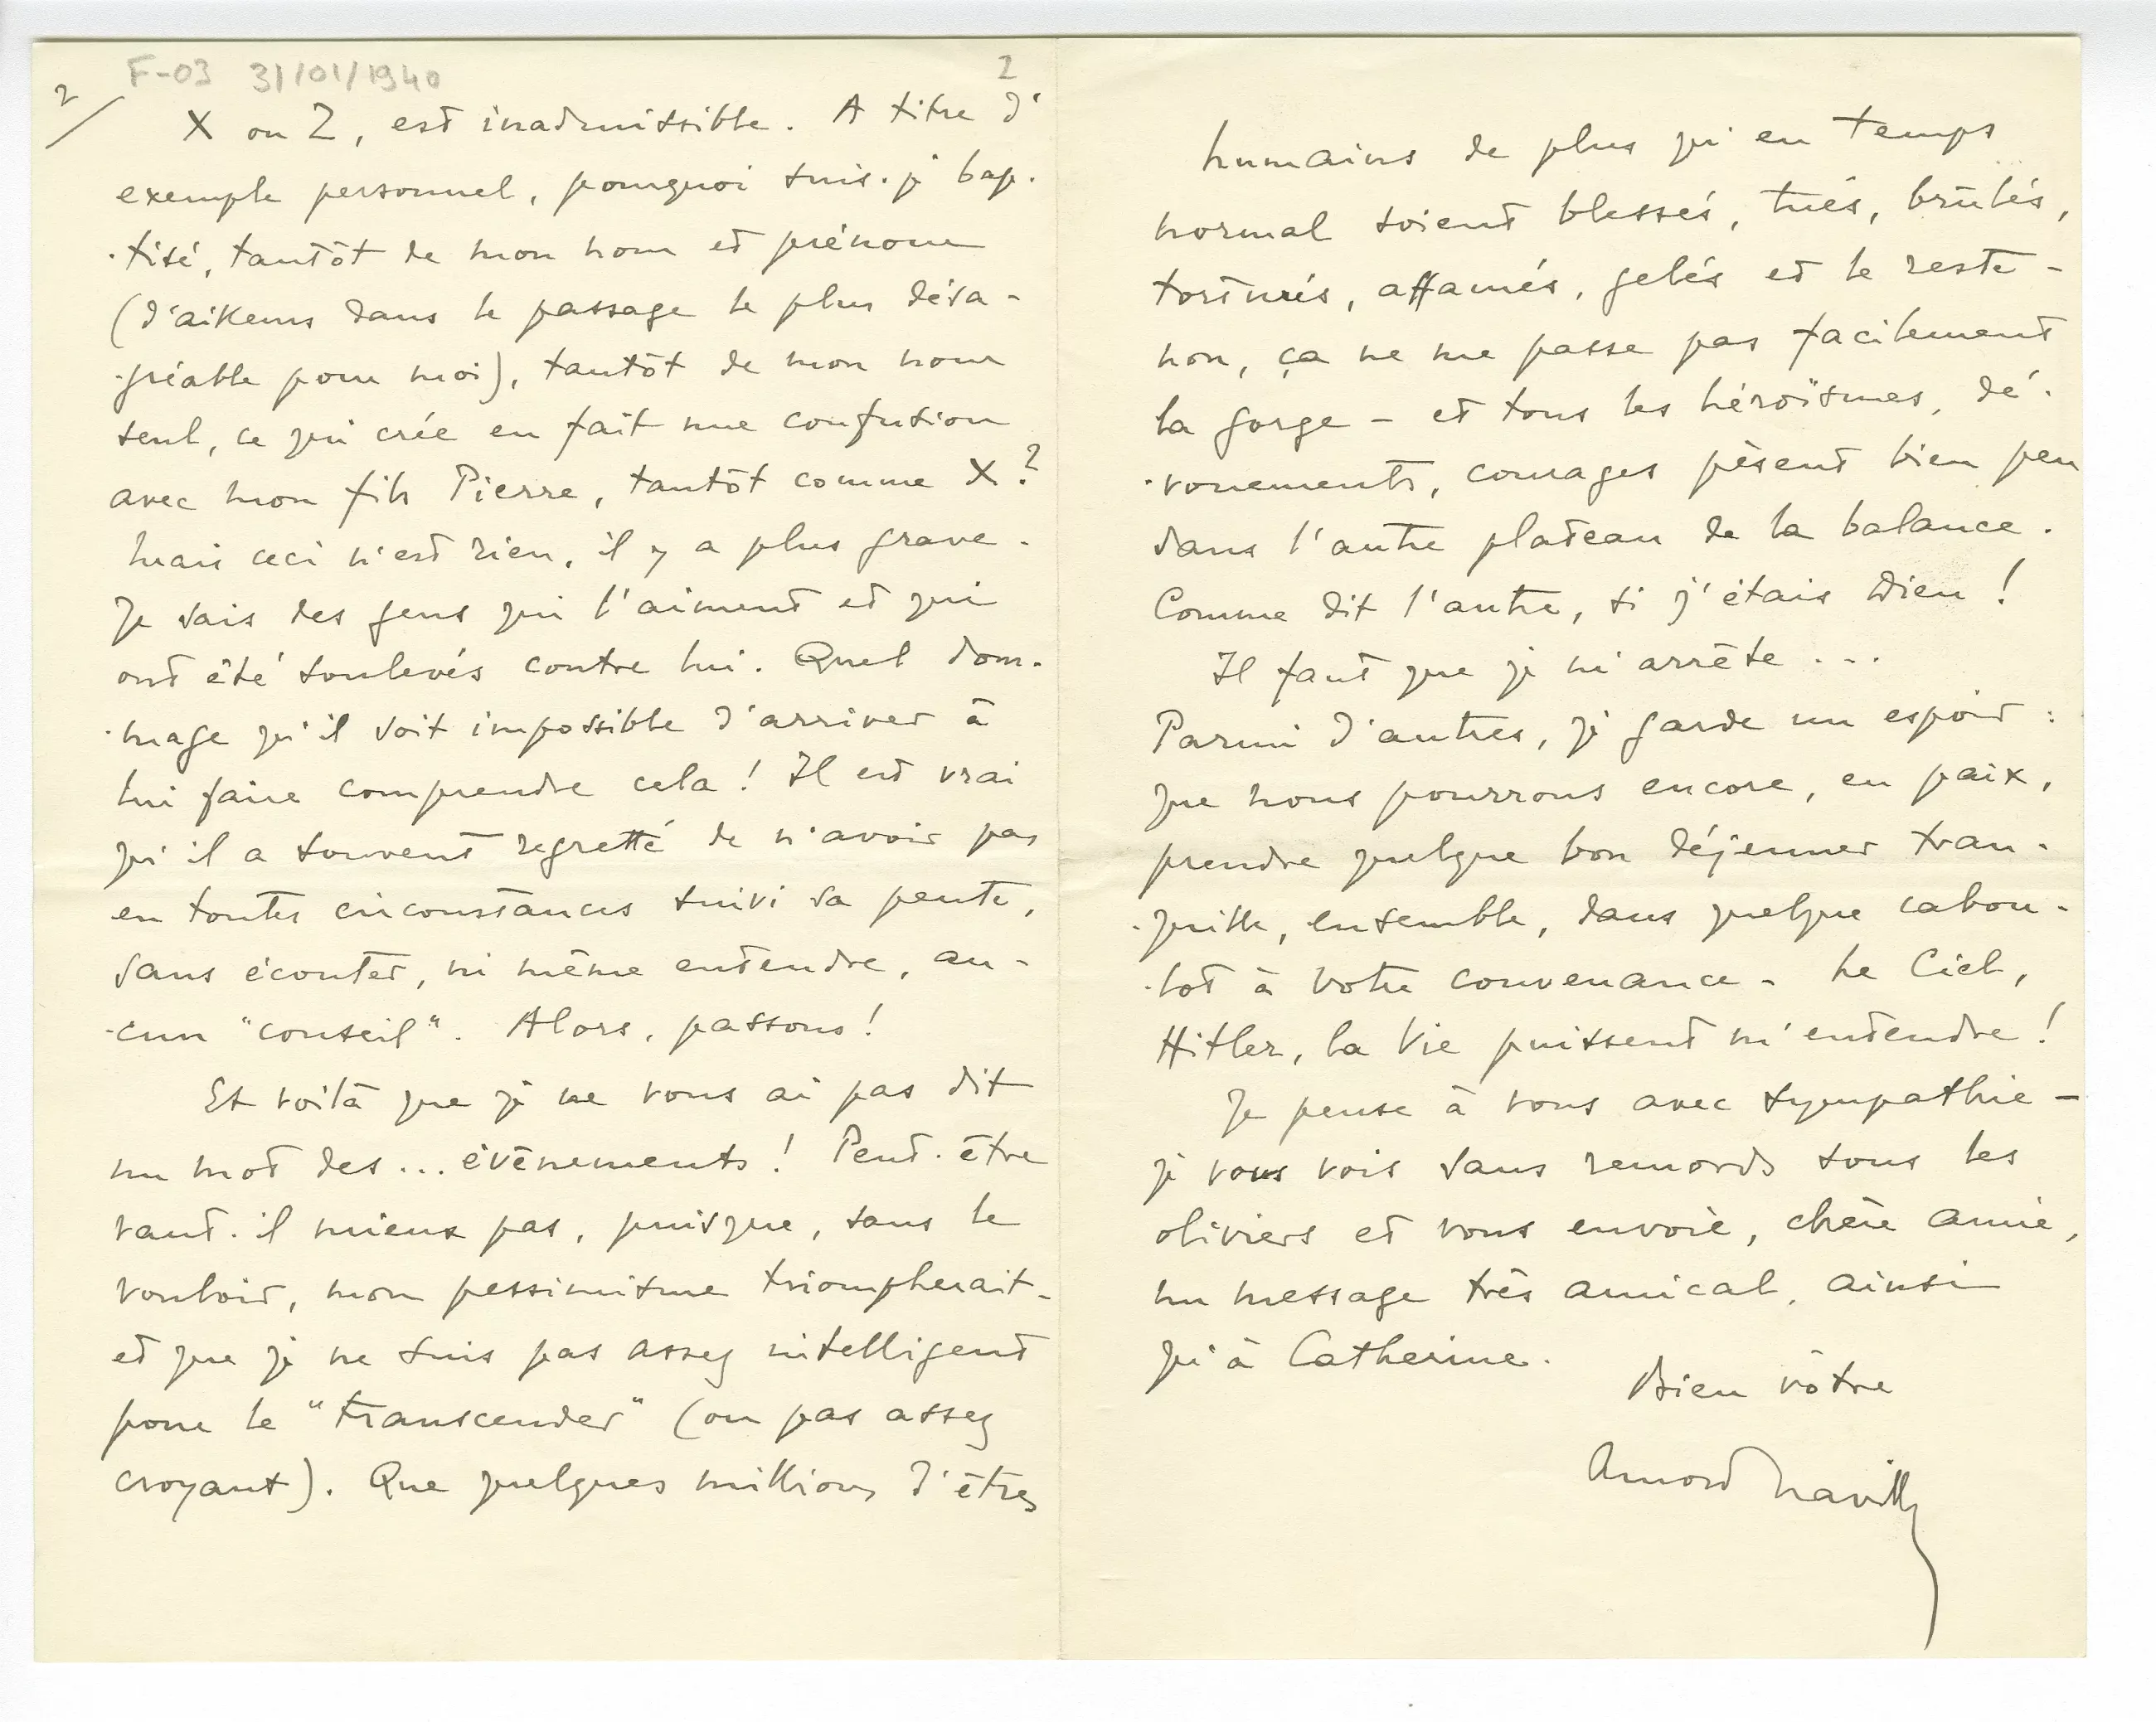 F-03 31/01/1940
2
2/
X ou Z, est inadmissible. A titre d'
exemple personnel, pourquoi suis-je bap-
-tisé, tantôt de mon nom et prénom
(d'aikeurs dans le passage le plus désa-
-gréable pour moi), tantôt de mon nom
seul, ce qui crée en fait une confusion
avec mon fils Pierre, tantôt comme X ?
Mais ceci n'est rien, il y a plus grave.
Je sais des gens qui l'aiment et qui
ont été soulevés contre lui. Quel dom-
-mage qu'il soit impossible d'arriver à
lui faire comprendre cela ! Il est vrai
qu'il a souvent regretté de n'avoir pas
en toutes circonstances suivi sa pente,
sans écouter, ni même entendre, au-
-cun "conseil". Alors, passons !
Et voilà que je ne vous ai pas dit
un mot des... évènements ! Peut-être
vaut-il mieux pas, puisque, sans le
vouloir, mon pessimisme triompherait -
et que je ne suis pas assez intelligent
pour le "transcender" (ou pas assez
croyant). Que quelques millions d'êtres
humains de plus qu'en temps
normal soient blessés, tués, brûlés,
torturés, affamés, gelés et le reste -
non, ça ne me passe pas facilement
la gorge - et tous les héroïsmes, dé-
-vouements, courages pèsent bien peu
dans l'autre plateau de la balance.
Comme dit l'autre, si j'étais Dieu !
Il faut que je m'arrête...
Parmi d'autres, je garde un espoir :
que nous pourrons encore, en paix,
prendre quelque bon déjeuner tran-
-quille, ensemble, dans quelque cabou-
-lot à votre convenance. Le Ciel,
Hitler, la Vie puissent m'entendre !
Je pense à vous avec sympathie -
je vous vois sans remords sous les
oliviers et vous envoie, chère amie,
un message très amical, ainsi
qu'à Catherine.
Bien vôtre
Arnold Naville